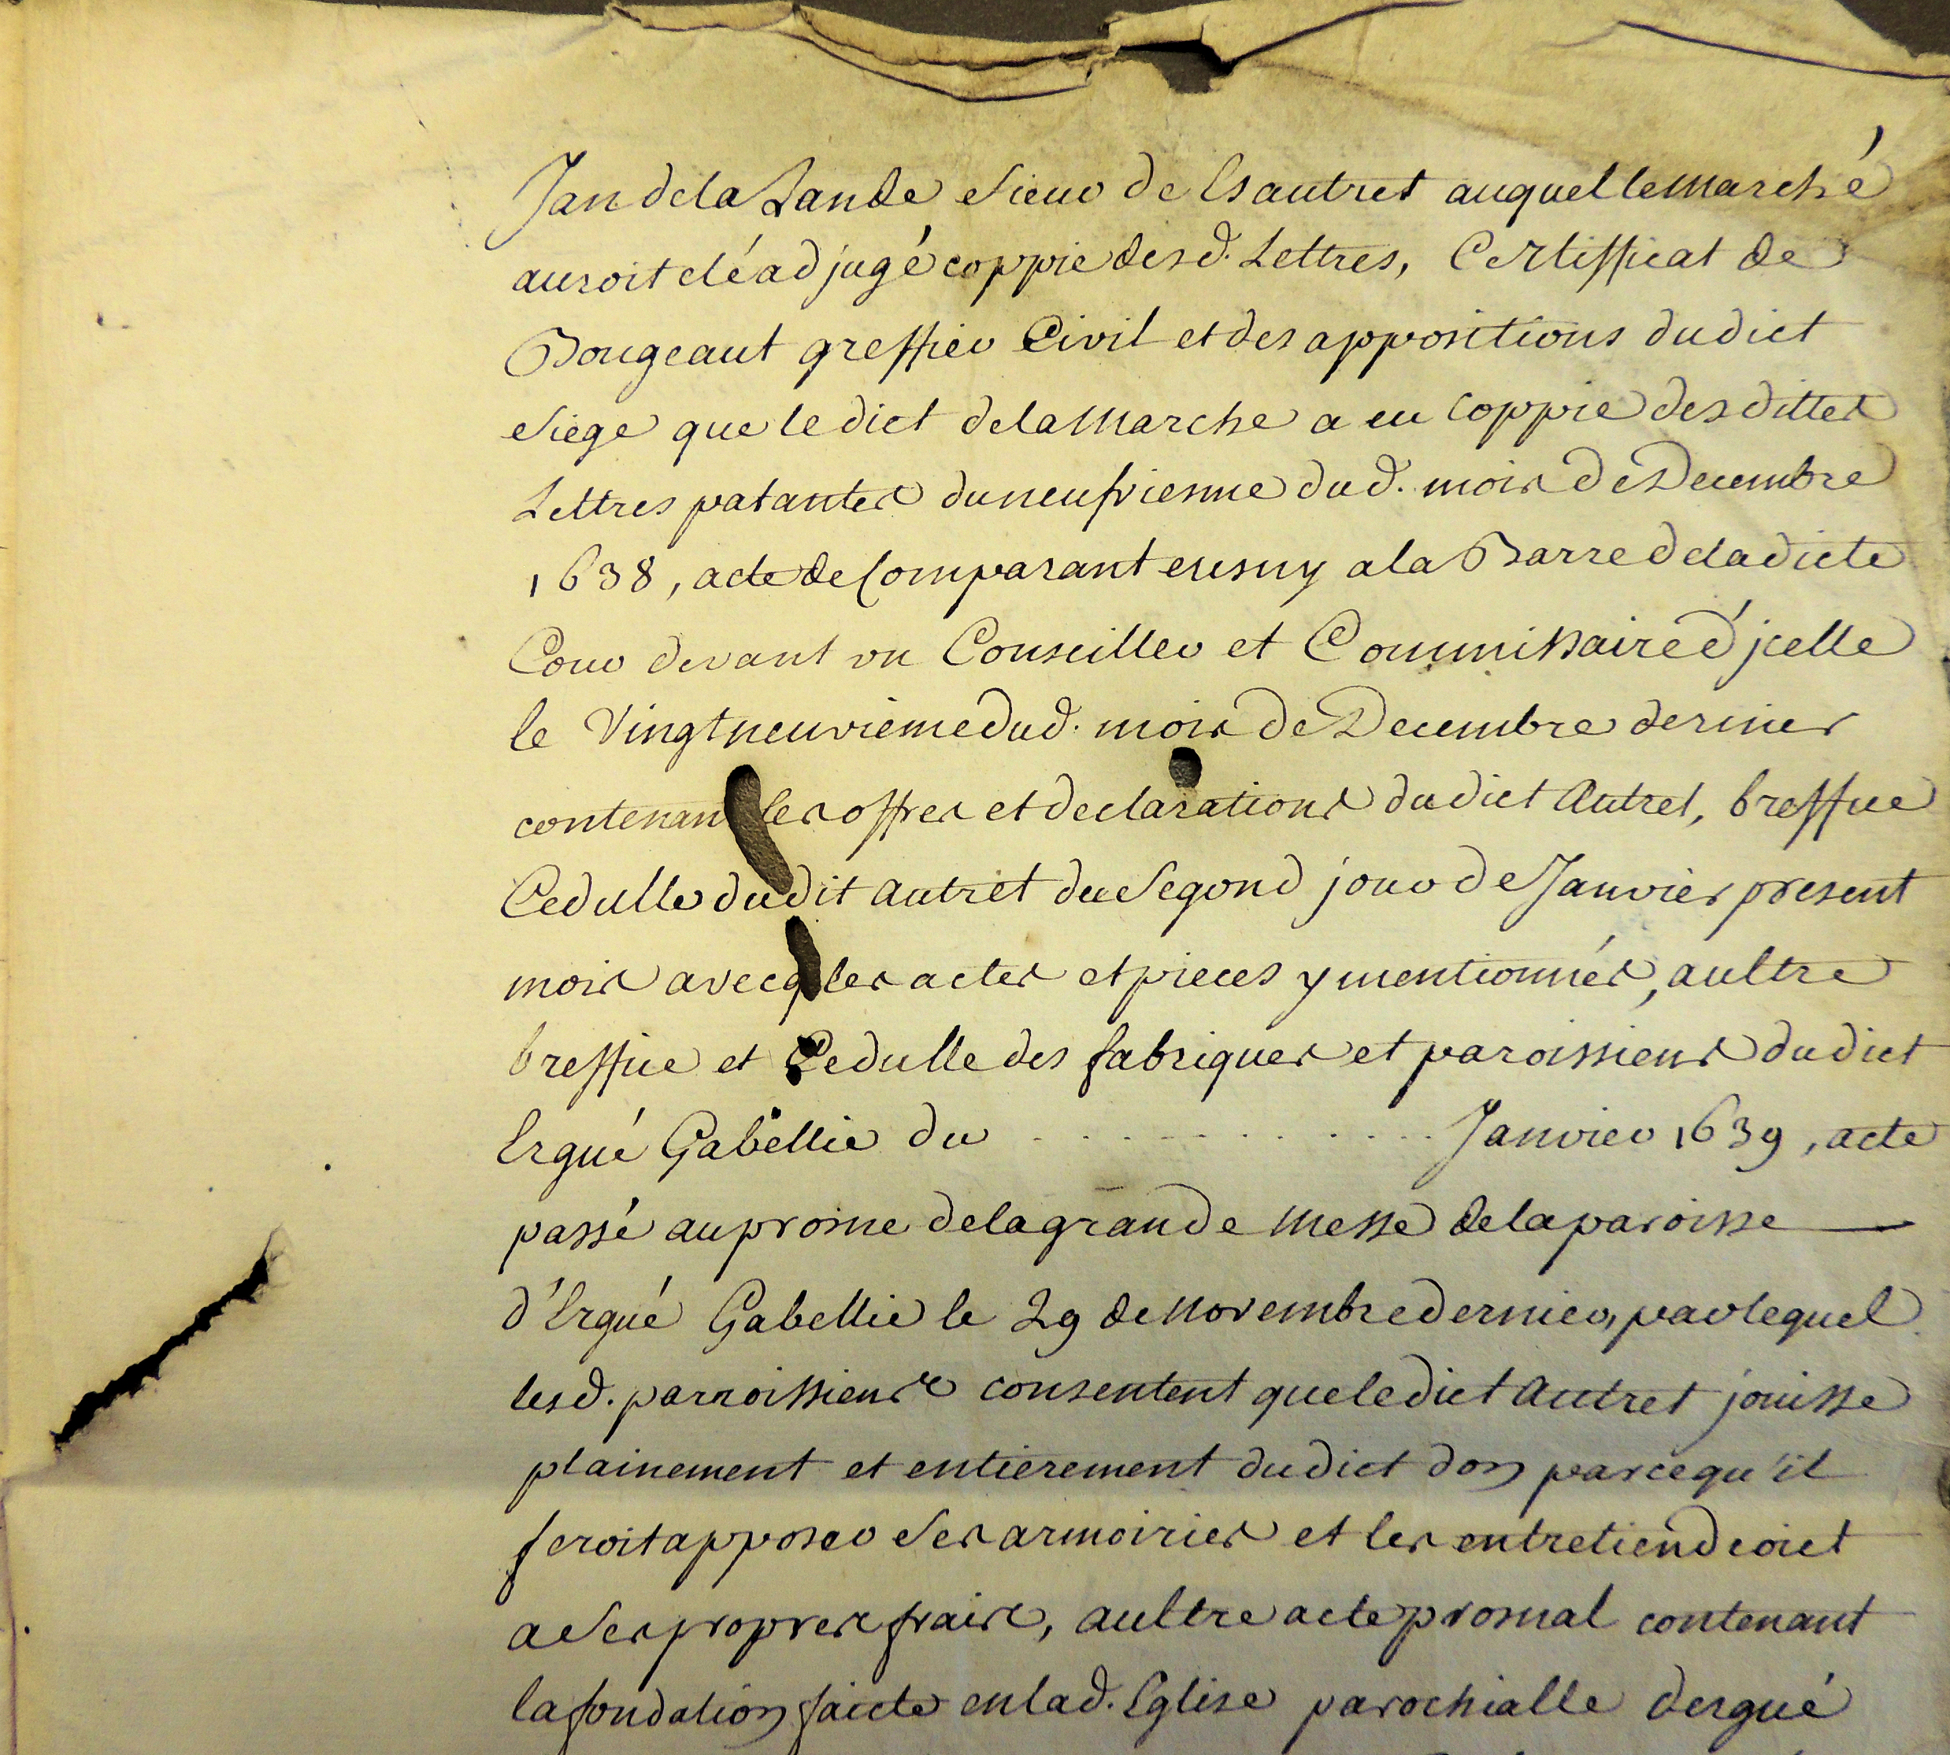 Jan de la Lande sieur de Esautret auquel le marché
auroit eté adjugé coppie desd. Lettres, Certifficat de
Bougeaut greffier Civil et des appositions dudict
siege que ledict de la Marche a eu coppie des dittes
Lettres patantes du neufviesme dud. mois de Decembre
1638, acte de Comparant  a la Barre de la dicte
Cour devant un Conseiller et Commissaire d'jcelle
le Vingt neuvieme dud. mois de Decembre dernier
contenant les offres et declarations dudict Autret, breffue
Cedulle dudit Autret du segond jour de Janvier present
mois avecq les actes et pieces y mentionnés, aultre
breffue et Cedulle des fabriques et paroissiens dudict
Ergué Gabellic du . . . . . . . . . . Janvier 1639, acte
passé au prosne de la grande Messe de la paroisse —
d'Ergué Gabellic le 29 de Novembre dernier, par lequel
lesd. parroissiens consentent que ledict Autret jouisse
plainement et entierement dudict don parcequ'il
feroit apposer ses armoiries et les entretiendroict
a ses propres frais, aultre acte prosnal contenant
la fondation faicte en lad. Eglise parochialle dergué